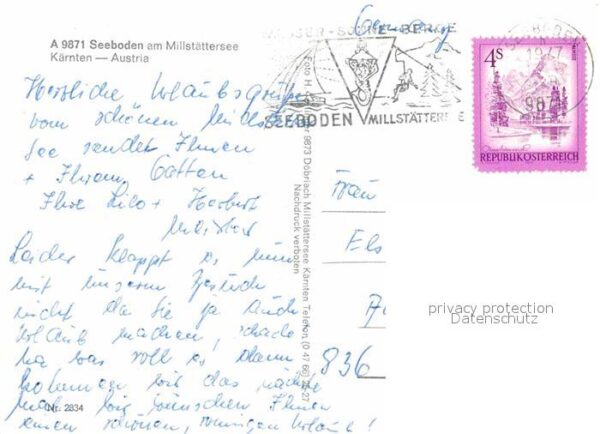 Germany
A 9871 Seeboden am Millstättersee
Kärnten — Austria
WASSER - SONNE - BERGE
SEEBODEN MILLSTÄTTERSEE
4S
REPUBLIK ÖSTERREICH
Herzliche Urlaubsgrüße
vom schönen Millstätter
See sendet Ihnen
+ Ihrem Gatten
Ihre Lilo + Herbert
Leider klappt es nun
mit unserem Besuch
nicht da Sie ja auch
Urlaub machen, schade
na was soll es dann
kommen wir das nächste
mal. Wir wünschen Ihnen
einen schönen, sonnigen Urlaub!
Nr. 2834
9873 Döbriach Millstättersee Kärnten Telefon (0 47 66)
Nachdruck verboten
Frau
Els
836
privacy protection
Datenschutz